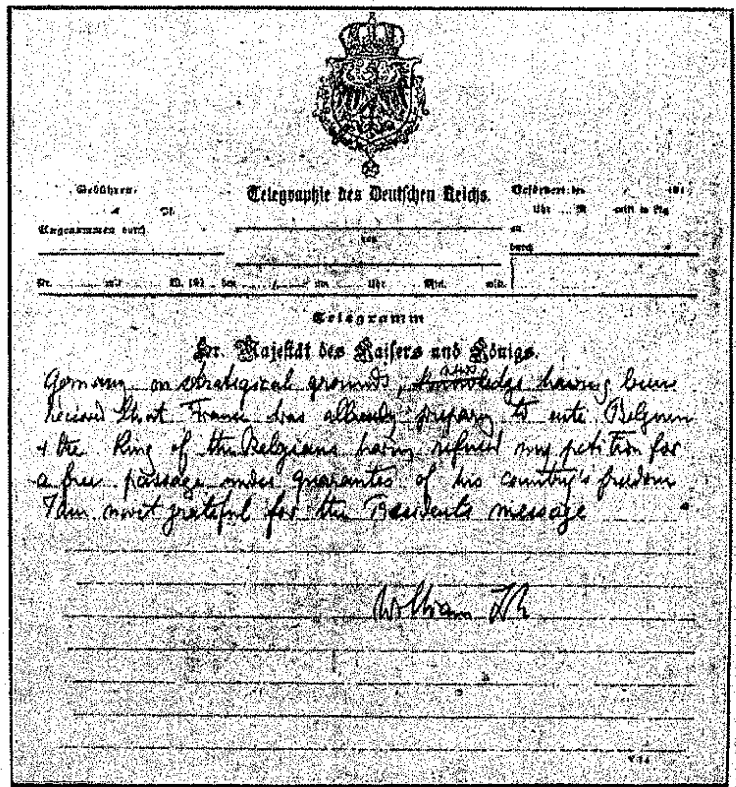 Gebühren:
Telegraphie des Deutschen Reichs.
Befördert: den 191
M. Pf.
Uhr M mitt in Ltg
Angenommen durch
von
an
durch
Nr. mit W. 191 den um Uhr Min. mitt.
Telegramm
Sr. Majestät des Kaisers und Königs.
news
Germany on strategical grounds, knowledge having been
received that France was already preparing to enter Belgium
& the King of the Belgians having refused my petition for
a free passage under guarantee of his country's freedom
I am most grateful for the Presidents message
William IR